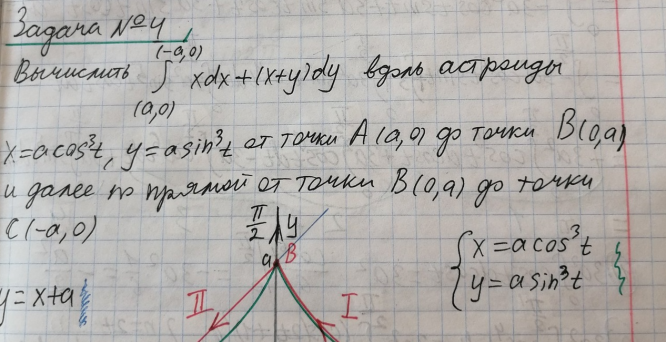 Задача №4
(-a,0)
Вычислить ∫ xdx+(x+y)dy вдоль астроиды
(a,0)
x=acos³t, y=asin³t от точки A(a,0) до точки B(0,a)
и далее по прямой от точки B(0,a) до точки
C(-a,0)
π/2 y
a B
y=x+a
II I
x=acos³t
y=asin³t